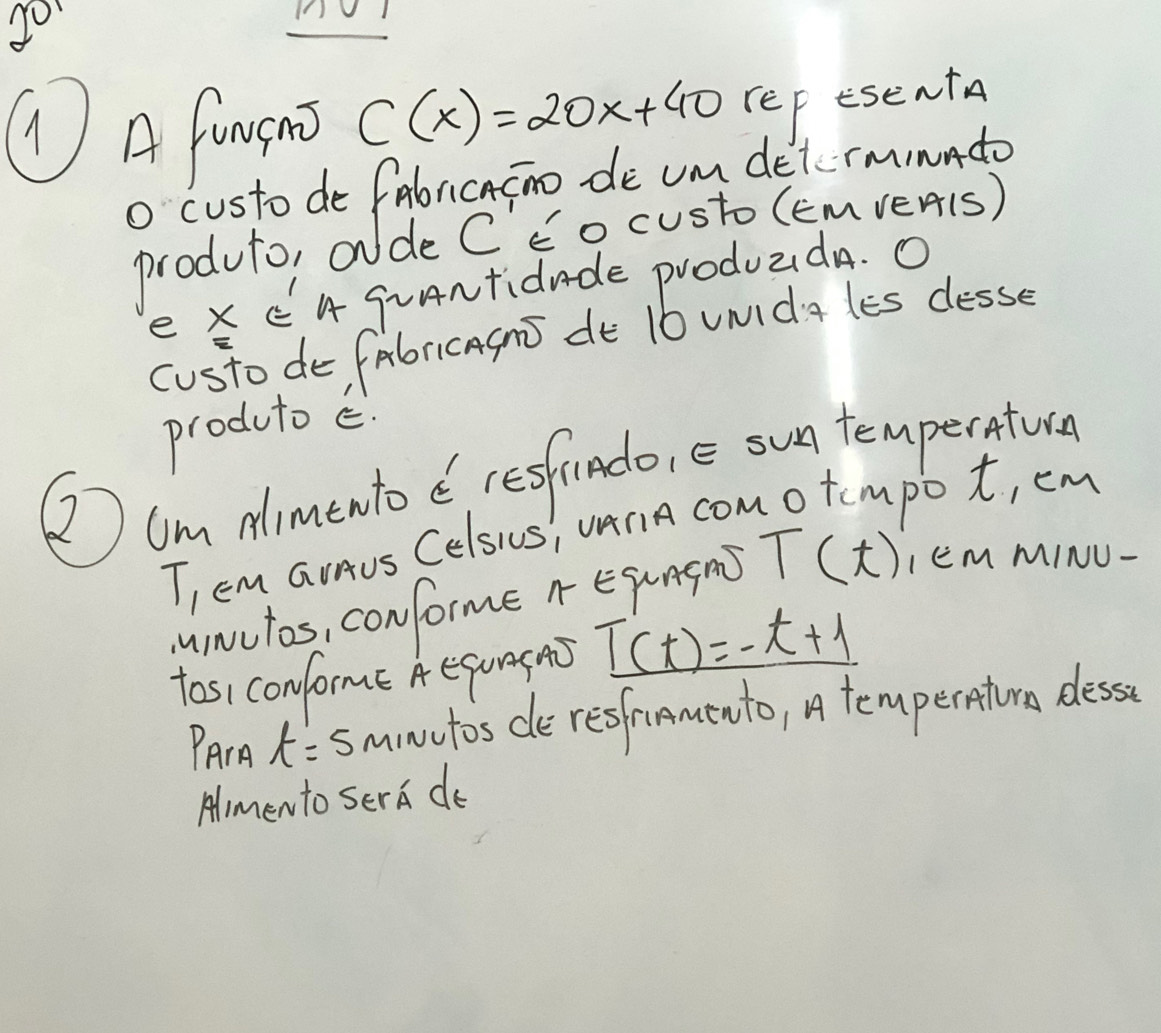 ① A função C(x)=20x+40 representa
o custo de fabricação de um determinado
produto, onde C é o custo (em reais)
e x é a quantidade produzida. O
custo de fabricação de 10 unidades desse
produto é.
② Um alimento é resfriado, e sua temperatura
T, em graus Celsius, varia com o tempo t, em
minutos, conforme a equação T(t), em minu-
tos, conforme a equação T(t)=-t+1
Para t=5 minutos de resfriamento, a temperatura desse
alimento será de